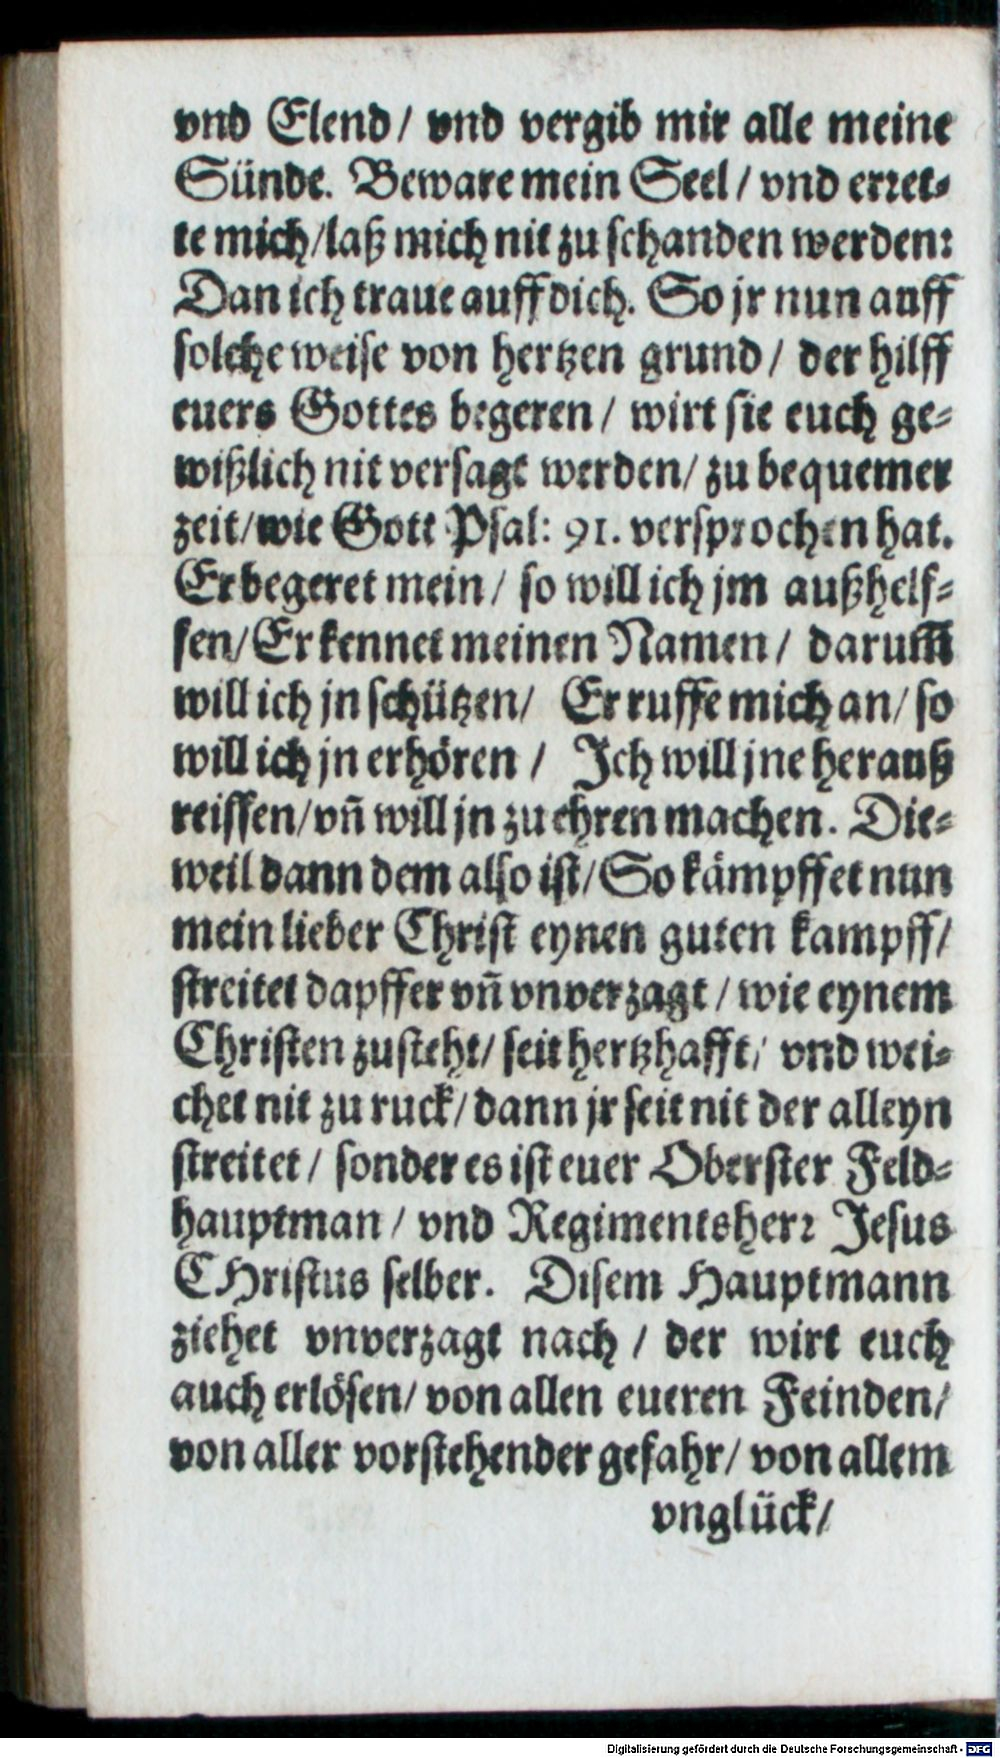 vnd Elend/ vnd vergib mir alle meine
Sünde. Beware mein Seel/ vnd erret-
te mich/laß mich nit zu schanden werden:
Dan ich traue auff dich. So jr nun auff
solche weise von hertzen grund/ der hilff
euers Gottes begeren/ wirt sie euch ge-
wißlich nit versagt werden/ zu bequemer
zeit/wie Gott Psal: 91. versprochen hat.
Er begeret mein/ so will ich jm außhelf-
fen/Er kennet meinen Namen/ darum̃
will ich jn schützen/ Er ruffe mich an/ so
will ich jn erhören/ Ich will jne herauß
reissen/vñ will jn zu ehren machen. Die-
weil dann dem also ist/So kämpffet nun
mein lieber Christ eynen guten kampff/
streitet dapffer vñ vnverzagt/ wie eynem
Christen zusteht/ seit hertzhafft/ vnd wei-
chet nit zu ruck/ dann jr seit nit der alleyn
streitet/ sonder es ist euer Oberster Feld-
hauptman/ vnd Regimentsherr Jesus
CHristus selber. Disem Hauptmann
ziehet vnverzagt nach/ der wirt euch
auch erlösen/ von allen eueren Feinden/
von aller vorstehender gefahr/ von allem
vnglück/
Digitalisierung gefördert durch die Deutsche Forschungsgemeinschaft - DFG